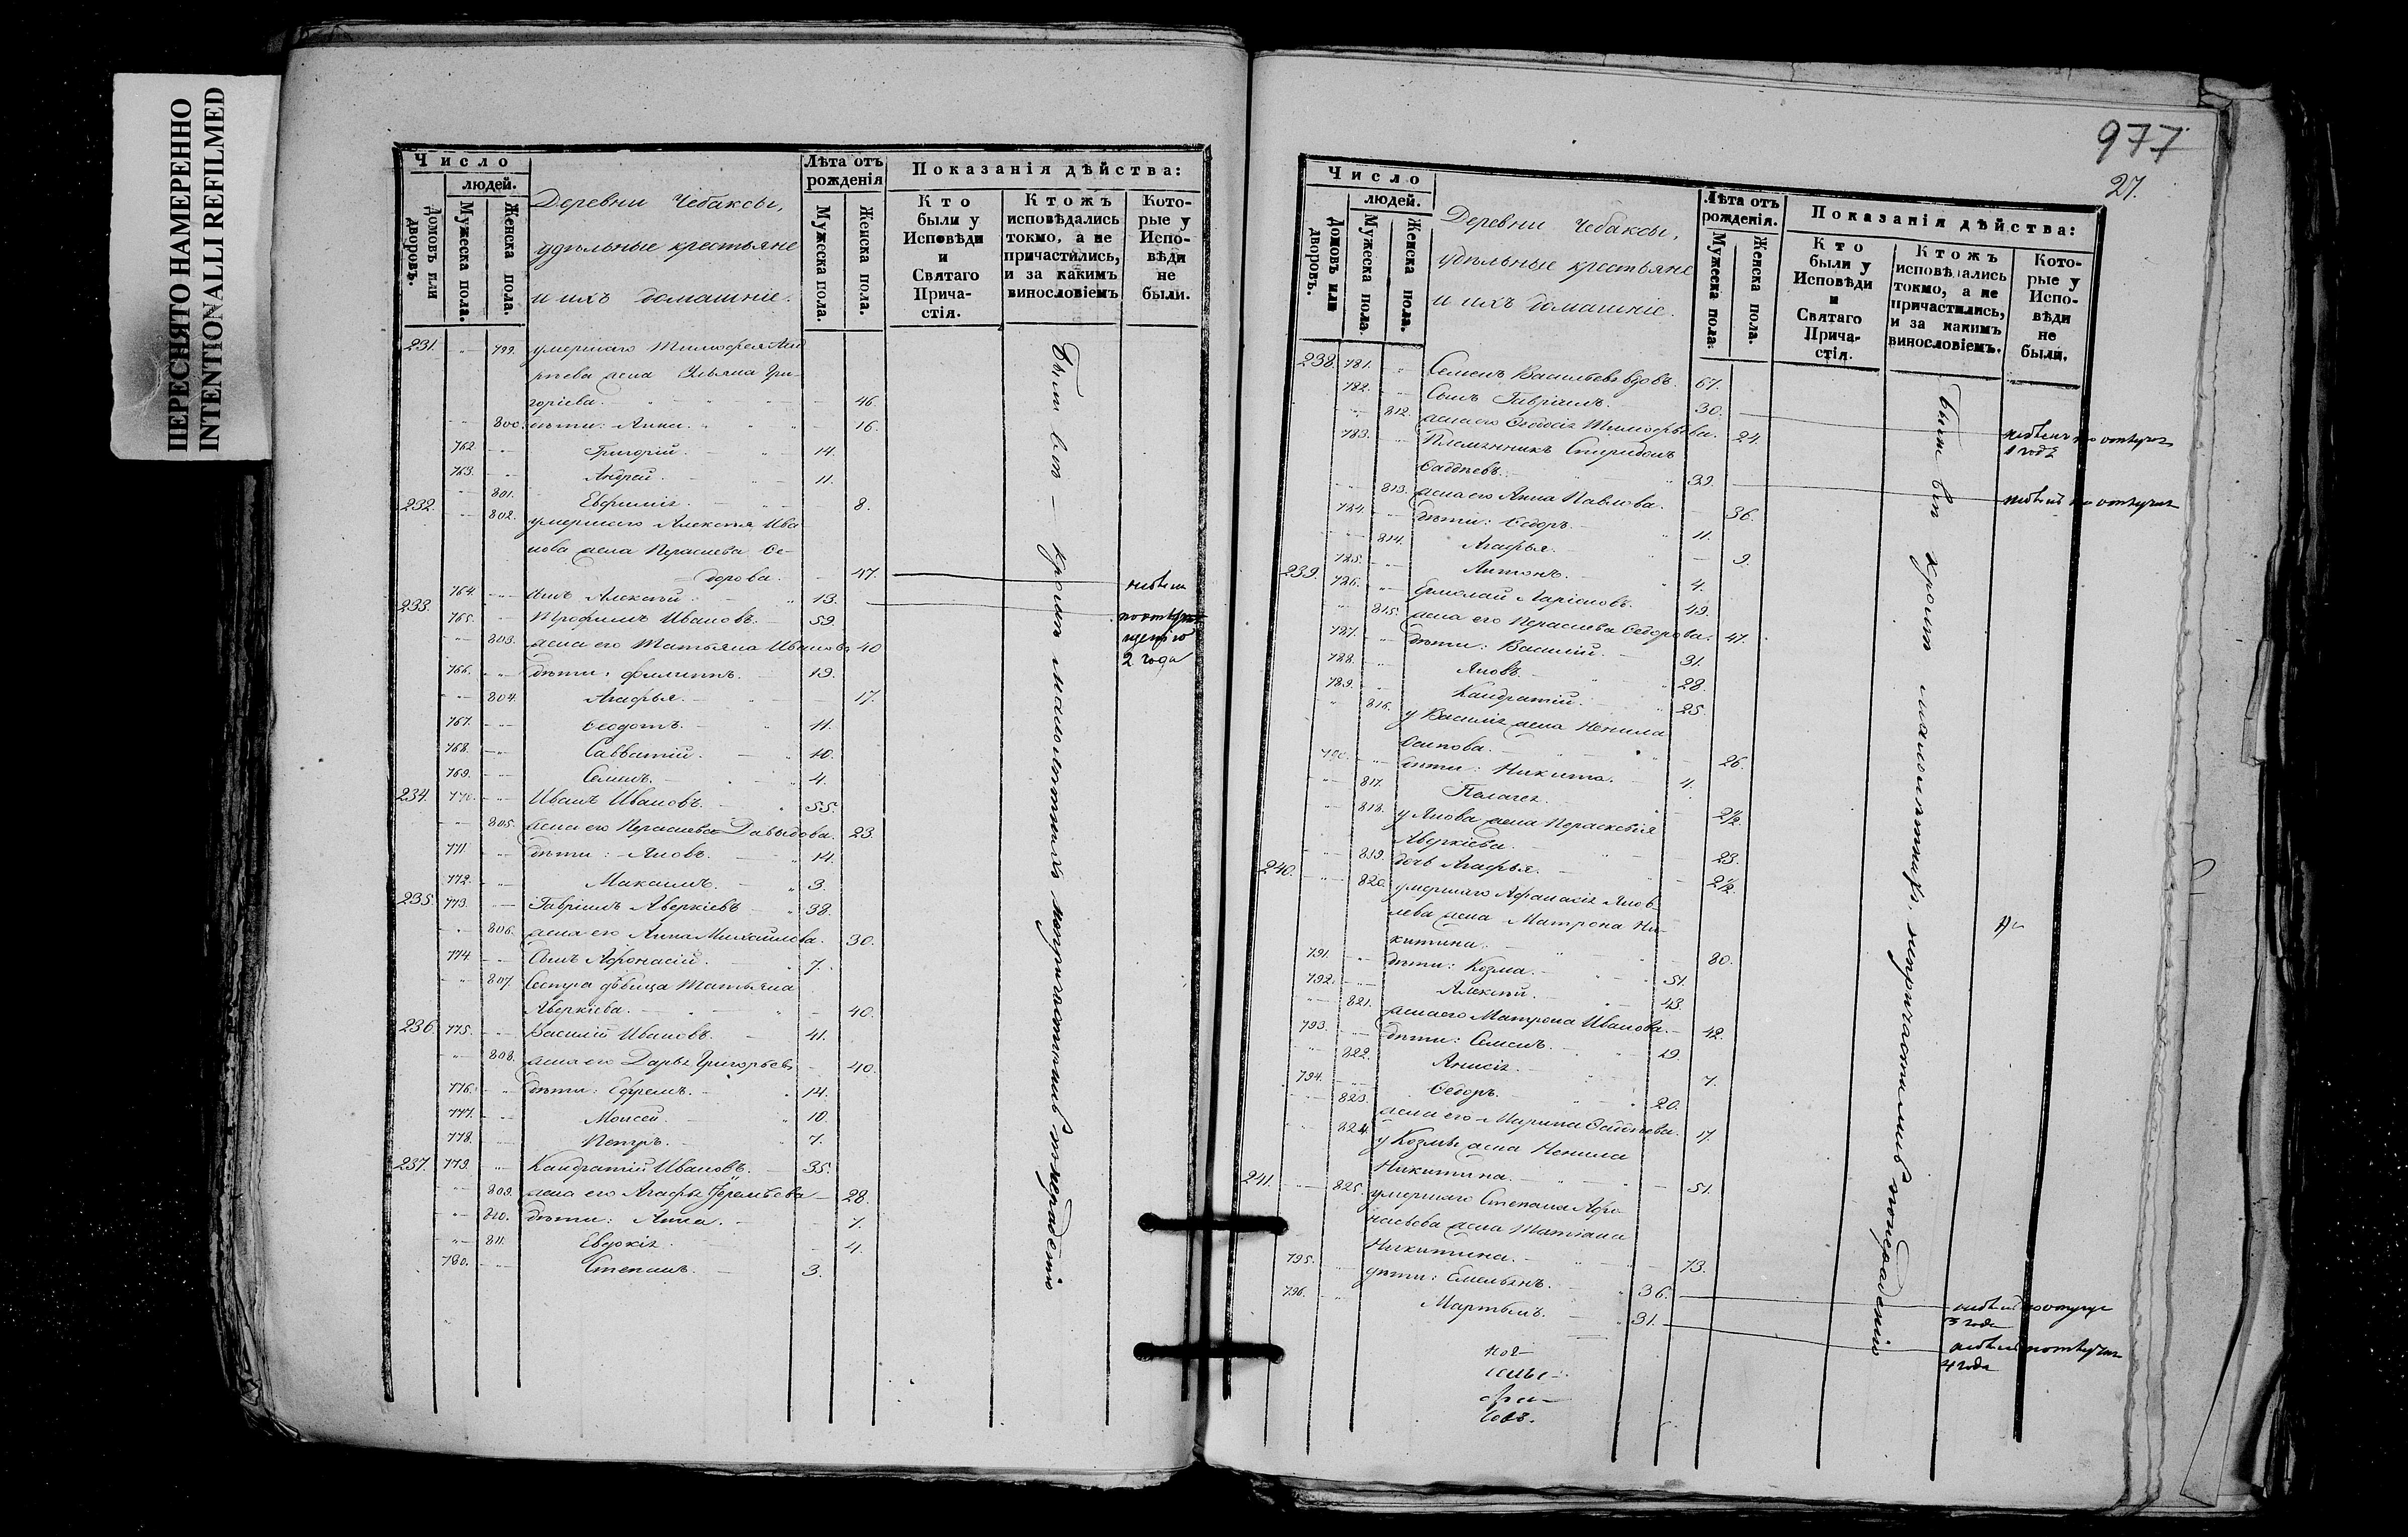 ПЕРЕСНЯТО НАМЕРЕННО
INTENTIONALLI REFILMED
Число
людей.
Домовъ или дворовъ.
Мужеска пола.
Женска пола.
Деревни Чебаксы,
удѣльные крестьяне
и ихъ домашніе.
Лѣта отъ рожденія
Мужеска пола.
Женска пола.
Показанія дѣйства:
Кто были у Исповѣди и Святаго Причастія.
Ктожъ исповѣдались токмо, а не причастились, и за какимъ винословіемъ
Которые у Исповѣди не были.
231. 799. умершаго Тимофея
жена Ульяна Гри-
горіева. 46.
800. дѣти: Анна. 16.
762. Григорій. 14.
763. Андрей. 11.
801. Евфимія. 8.
232. 802. умершаго Алексѣя Ива
нова жена Параскева Ѳе-
дорова. 47.
764. сынъ Алексѣй. 13.
233. 765. Трофимъ Ивановъ. 59.
803. жена его Татьяна Иванова 40
2 года
766. дѣти: Филиппъ. 19.
804. Агафья. 17.
767. Ѳеодотъ. 11.
768. Савватій. 10.
769. Семенъ. 4.
234. 770. Иванъ Ивановъ. 55.
805. жена его Параскева Давыдова. 23.
771. дѣти: Яковъ. 14.
772. Максимъ. 3.
235. 773. Гавріилъ Аверкіевъ 38.
806. жена его Анна Михайлова. 30.
774. Сынъ Афонасій. 7.
807. Сестра дѣвица Татьяна
Аверкіева. 40.
236. 775. Василій Ивановъ. 41.
808. жена его Дарья Григорьева 40.
776. дѣти: Ефремъ. 14.
777. Моисей. 10.
778. Петръ. 7.
237. 779. Кандратій Ивановъ. 35.
809. жена его Агафья Ефремьева 28.
810. дѣти: Анна. 7.
811. Евдокія. 4.
780. Степанъ. 3.
Были всѣ кромѣ малолѣтнихъ непричастились по нераденію
977
27.
Число
людей.
Домовъ или дворовъ.
Мужеска пола.
Женска пола.
Деревни Чебаксы,
удѣльные крестьяне
и ихъ домашніе.
Лѣта отъ рожденія.
Мужеска пола.
Женска пола.
Показанія дѣйства:
Кто были у Исповѣди и Святаго Причастія.
Ктожъ исповѣдались токмо, а не причастились, и за какимъ винословіемъ.
Которые у Исповѣди не были.
238. 781. Семенъ Васильевъ вдовъ. 67.
782. Сынъ Гавріилъ. 30.
1 годъ
812. жена его Ѳеодосія Тимофѣева. 24.
783. Племянникъ Спиридонъ
Фаддѣевъ. 39.
813. жена его Анна Павлова. 36.
784. дѣти: Ѳедоръ. 11.
814. Агафья. 9.
785. Антонъ. 4.
239. 786. Ермолай Ларіоновъ. 49.
815. жена его Параскева Ѳедорова. 47.
787. дѣти: Василій. 31.
788. Яковъ. 28.
789. Кандратій. 25.
816. у Василія жена Ненила
Осипова. 26.
790. дѣти: Никита. 4.
817. Палагея. 2½.
818. у Якова жена Параскевія
Аверкіева. 23.
819. дочь Агафья. 2½.
240. 820. умершаго Афанасія Яков-
лева жена Матрона Ни-
китина. 80.
791. дѣти: Козма. 51.
792. Алексѣй. 43.
821. жена его Матрона Иванова. 42.
793. дѣти: Семенъ. 19.
822. Анисія. 7.
794. Ѳедоръ. 20.
823. жена его Марина Фадѣева. 17.
824. у Козмы жена Ненила
Никитина. 51.
241. 825. умершаго Степана Афо-
насьева жена Татіана
Никитина. 73.
795. дѣти: Емельянъ. 36.
3 года
796. Мартынъ. 31.
4 года
Были всѣ кромѣ малолѣтнихъ, непричастились по нераденію